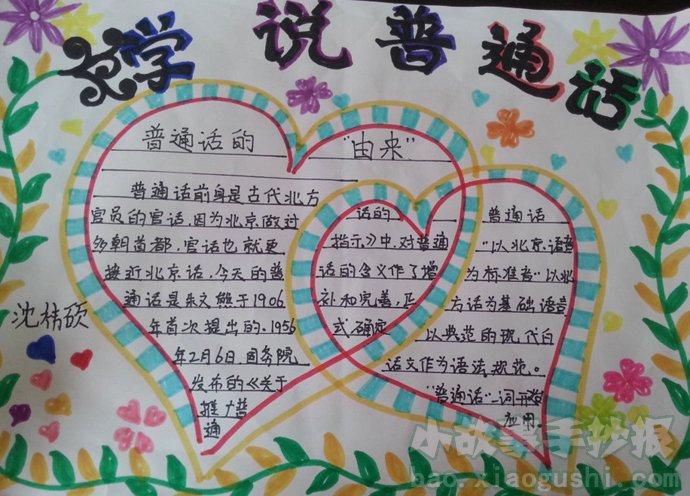 学 说 普 通 话
普通话的 "由来"
普通话前身是古代北方
官员的官话,因为北京做过
多朝首都,官话也就更
接近北京话,今天的普
通话是朱文熊于1906
年首次提出的。1956
年2月6日,国务院
发布的《关于
推广普
通
话的
指示》中,对普通
话的含义作了增
补和完善,正
式确定
普通话
"以北京语音
为标准音"以北
方话为基础语言
以典范的现代白
话文作为语法规范。
"普通话"一词开始
应用。
小故事手抄报
bao.xiaogushi.com